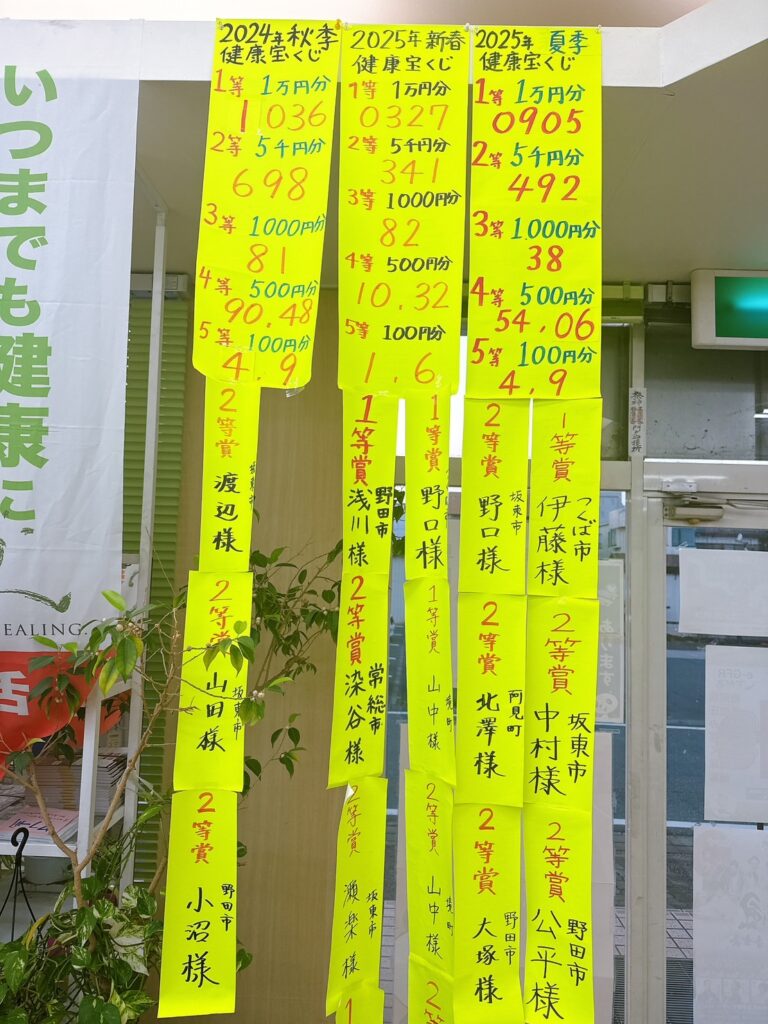 いつまでも健康に
EALING.
2024年秋季
健康宝くじ
1等 1万円分
1036
2等 5千円分
698
3等 1000円分
81
4等 500円分
90.48
5等 100円分
4.9
2等賞
坂東市
渡辺様
2等賞
坂東市
山田様
2等賞
野田市
小沼様
2025年 新春
健康宝くじ
1等 1万円分
0327
2等 5千円分
341
3等 1000円分
82
4等 500円分
10.32
5等 100円分
1.6
1等賞
野田市
浅川様
2等賞
常総市
染谷様
2等賞
坂東市
瀬楽様
1
1等賞
野口様
1等賞
山中様
2等賞
山中様
2
2025年 夏季
健康宝くじ
1等 1万円分
0905
2等 5千円分
492
3等 1000円分
38
4等 500円分
54.06
5等 100円分
4.9
2等賞
坂東市
野口様
2等賞
阿見町
北澤様
2等賞
野田市
大塚様
1等賞
つくば市
伊藤様
2等賞
坂東市
中村様
2等賞
野田市
公平様
あります
e-GFR